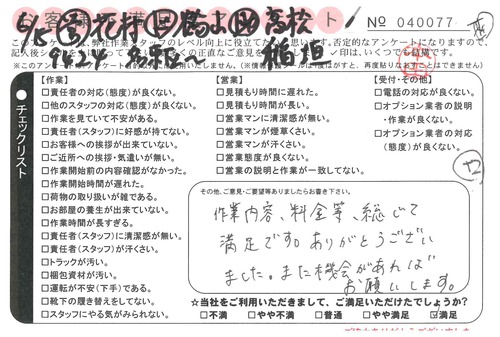 お客様満足度アンケート
No 040077
このアンケートは、弊社作業スタッフのレベル向上に役立てたいと思います。否定的なアンケートになりますので、
チェックリスト
【作業】
□責任者の対応(態度)が良くない。
□他のスタッフの対応(態度)が良くない。
□作業を見ていて不安がある。
□責任者(スタッフ)に好感が持てない。
□お客様への挨拶が出来ていない。
□ご近所への挨拶・気遣いが無い。
□作業開始前の内容確認がなかった。
□作業開始時間が遅れた。
□荷物の取り扱いが雑である。
□お部屋の養生が出来ていない。
□作業時間が長すぎる。
□責任者(スタッフ)に清潔感が無い。
□責任者(スタッフ)が汗くさい。
□トラックが汚い。
□梱包資材が汚い。
□運転が不安(下手)である。
□靴下の履き替えをしてない。
□スタッフにやる気がみられない。
【営業】
□見積もり時間に遅れた。
□見積もり時間が長い。
□営業マンに清潔感が無い。
□営業マンが煙草くさい。
□営業マンが汗くさい。
□営業態度が良くない。
□営業の説明と作業が一致してない。
【受付・その他】
□電話の対応が良くない。
□オプション業者の説明
・作業が良くない。
□オプション業者の対応
(態度)が良くない。
その他、ご意見・ご要望等ありましたらお書き下さい。
作業内容、料金等、総じて
満足です。ありがとうござい
ました。また機会があれば
お願いします。
☆当社をご利用いただきまして、ご満足いただけたでしょうか?
□不満 □やや不満 □普通 □やや満足 ☑満足